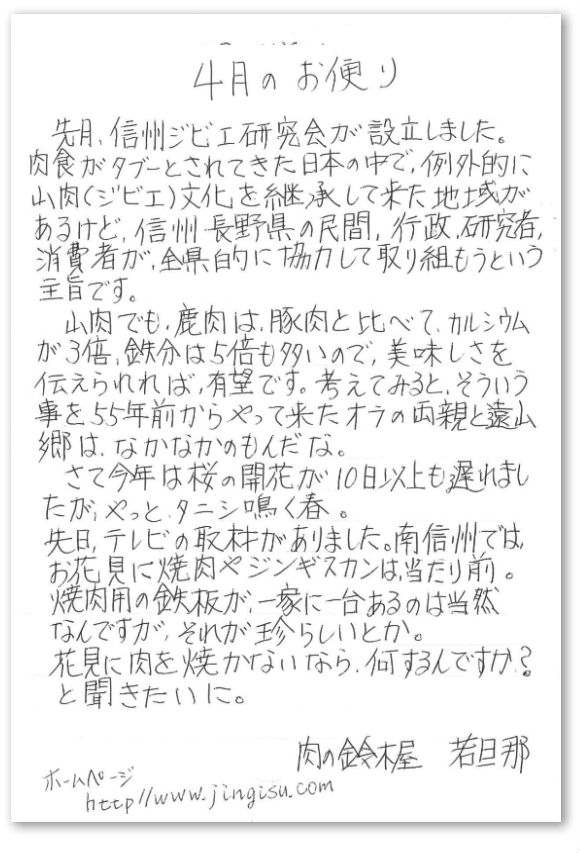 4月のお便り
先月、信州ジビエ研究会が設立しました。
肉食がタブーとされてきた日本の中で、例外的に
山肉(ジビエ)文化を継承して来た地域が
あるけど、信州長野県の民間、行政、研究者、
消費者が、全県的に協力して取り組もうという
主旨です。
山肉でも、鹿肉は、豚肉と比べて、カルシウム
が3倍、鉄分は5倍も多いので、美味しさを
伝えられれば、有望です。考えてみると、そういう
事を55年前からやって来たオラの両親と遠山
郷は、なかなかのもんだな。
さて今年は桜の開花が10日以上も遅れまし
たが、やっと、タニシ鳴く春。
先日、テレビの取材がありました。南信州では、
お花見に焼肉やジンギスカンは、当たり前。
焼肉用の鉄板が、一家に一台あるのは当然
なんですが、それが珍らしいとか。
花見に肉を焼かないなら、何するんですか?
と聞きたいに。
肉の鈴木屋 若旦那
ホームページ
http//www.jingisu.com